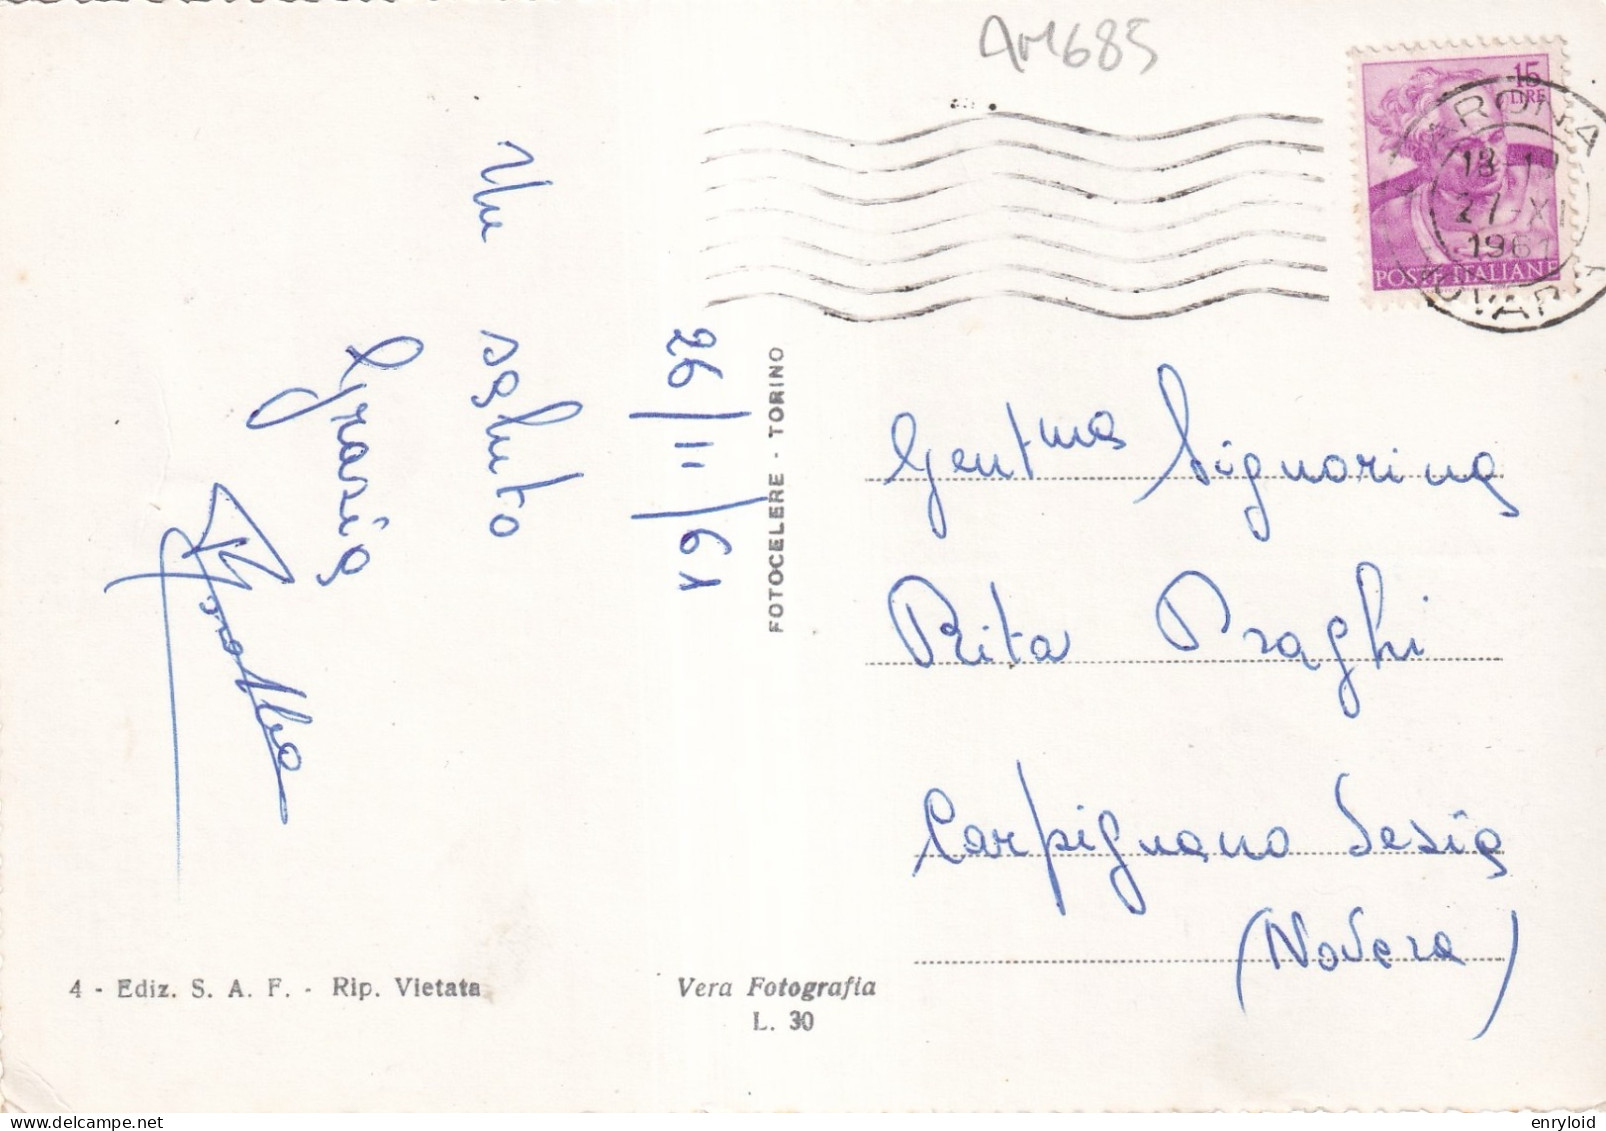 AM685
15
LIRE
POSTE ITALIANE
ARONA
18-19
27-XI
1961
Un
saluto
Grazia
26/11/61
FOTOCELERE - TORINO
Gent.ma Signorina
Rita Draghi
Carpignano Sesia
(Novara)
4 - Ediz. S. A. F. - Rip. Vietata
Vera Fotografia
L. 30
www.delcampe.net
enryloid